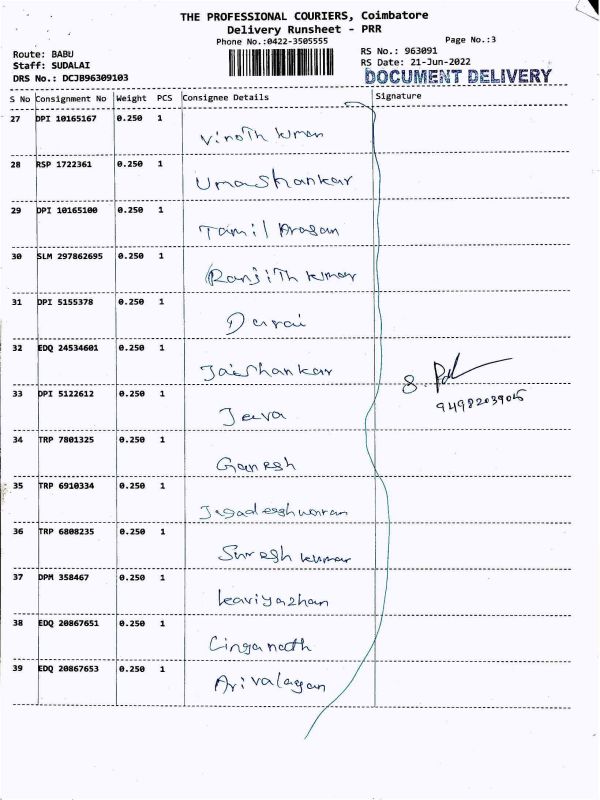 THE PROFESSIONAL COURIERS, Coimbatore
Delivery Runsheet - PRR
Phone No.:0422-3505555
Page No.:3
Route: BABU
RS No.: 963091
Staff: SUDALAI
RS Date: 21-Jun-2022
DRS No.: DCJB96309103
DOCUMENT DELIVERY
S No Consignment No Weight PCS Consignee Details Signature
27 DPI 10165167 0.250 1 Vinoth kumar
28 RSP 1722361 0.250 1 Umashankar
29 DPI 10165100 0.250 1 Tamil Arasan
30 SLM 297862695 0.250 1 Ranjith kumar
31 DPI 5155378 0.250 1 Durai
32 EDQ 24534601 0.250 1 Jaishankar
33 DPI 5122612 0.250 1 Jeeva
S.
34 TRP 7801325 0.250 1 Ganesh
35 TRP 6910334 0.250 1 Jagadeeshwaran
36 TRP 6808235 0.250 1 Suresh kumar
37 DPM 358467 0.250 1 kaviyazhan
38 EDQ 20867651 0.250 1
39 EDQ 20867653 0.250 1 Arivalagan